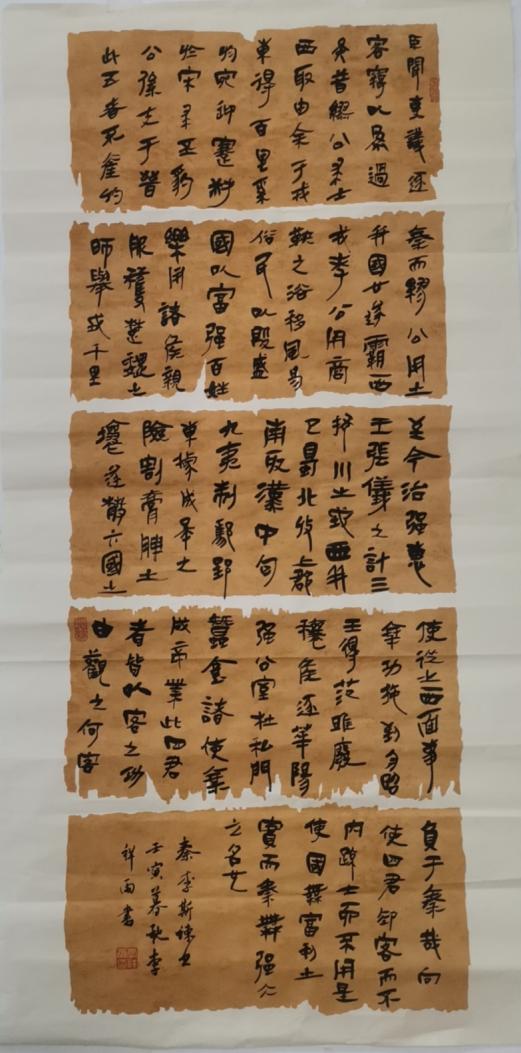 臣聞吏議逐
客竊以爲過
矣昔繆公求士
西取由余于戎
東得百里奚
於宛迎蹇叔
於宋求丕豹
公孫支于晉
此五者不產於
秦而繆公用之
并國廿遂霸西
戎孝公用商
鞅之法移風易
俗民以殷盛
國以富强百姓
樂用諸侯親
服獲楚魏之
師舉地千里
至今治强惠
王張儀之計三
拔川之地西并
巴蜀北收上郡
南取漢中包
九夷制鄢郢
東據成皋之
險割膏腴之
壤遂散六國之
使從之西面事
秦功施到今昭
王得范雎廢
穰侯逐華陽
强公室杜私門
蠶食諸使秦
成帝業此四君
者皆以客之功
由觀之何客
負于秦哉向
使四君卻客而不
内疎士而不用是
使國無富利之
實而秦無强大
之名也
秦李斯諫書
壬寅暮秋李
祥雨書